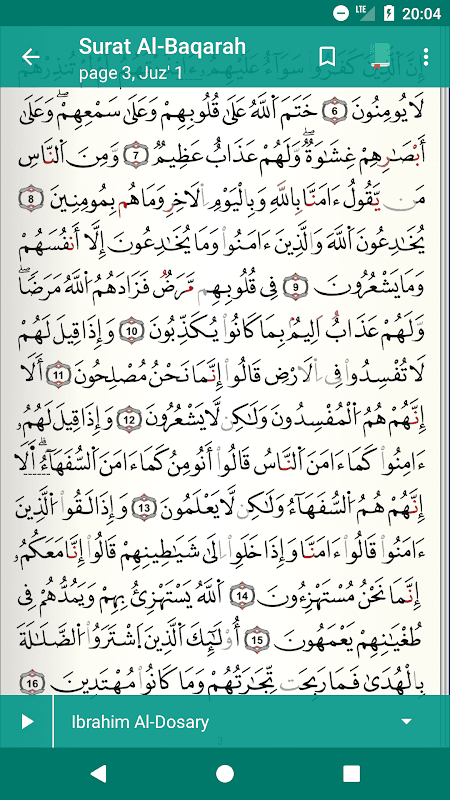 20:04
LTE
Surat Al-Baqarah
page 3, Juz' 1
إِنَّ اَ۬لذِينَ كَفَرُواْ سَوَآءٌ عَلَيْهِمُۥٓ
لَا يُومِنُونَ 6 خَتَمَ اَ۬للَّهُ عَلَىٰ قُلُوبِهِمْ وَعَلَىٰ سَمْعِهِمْۖ وَعَلَىٰٓ
أَبْصَٰرِهِمْ غِشَٰوَةٞۖ وَلَهُمْ عَذَابٌ عَظِيمٞۖ 7 وَمِنَ اَ۬لنَّاسِ
مَنْ يَّقُولُ ءَامَنَّا بِاللَّهِ وَبِالْيَوْمِ اِ۬لَاخِرِ وَمَا هُم بِمُومِنِينَ 8
يُخَٰدِعُونَ اَ۬للَّهَ وَالَّذِينَ ءَامَنُواْ وَمَا يُخَٰدِعُونَ إِلَّآ أَنفُسَهُمْ
وَمَا يَشْعُرُونَ 9 فِي قُلُوبِهِم مَّرَضٞ فَزَادَهُمُ اُ۬للَّهُ مَرَضاٗۖ
وَلَهُمْ عَذَابٌ اَلِيمُۢ بِمَا كَانُواْ يُكَذِّبُونَ 10 وَإِذَا قِيلَ لَهُمْ
لَا تُفْسِدُواْ فِي اِ۬لَارْضِ قَالُوٓاْ إِنَّمَا نَحْنُ مُصْلِحُونَ 11 أَلَآ
إِنَّهُمْ هُمُ اُ۬لْمُفْسِدُونَ وَلَٰكِن لَّا يَشْعُرُونَ 12 وَإِذَا قِيلَ لَهُمُۥٓ
ءَامِنُواْ كَمَآ ءَامَنَ اَ۬لنَّاسُ قَالُوٓاْ أَنُومِنُ كَمَآ ءَامَنَ اَ۬لسُّفَهَآءُۖ اُ۬لَآ
إِنَّهُمْ هُمُ اُ۬لسُّفَهَآءُ وَلَٰكِن لَّا يَعْلَمُونَ 13 وَإِذَا لَقُواْ اُ۬لذِينَ
ءَامَنُواْ قَالُوٓاْ ءَامَنَّا وَإِذَا خَلَوِاْ اِلَىٰ شَيَٰطِينِهِمْ قَالُوٓاْ إِنَّا مَعَكُمُۥٓ
إِنَّمَا نَحْنُ مُسْتَهْزِءُونَ 14 اَ۬للَّهُ يَسْتَهْزِئُ بِهِمْ وَيَمُدُّهُمْ فِي
طُغْيَٰنِهِمْ يَعْمَهُونَ 15 أُوْلَٰٓئِكَ اَ۬لذِينَ اَ۪شْتَرَوُاْ اُ۬لضَّلَٰلَةَ
بِالْهُدَىٰ فَمَا رَبِحَت تِّجَٰرَتُهُمْ وَمَا كَانُواْ مُهْتَدِينَ 16
Ibrahim Al-Dosary